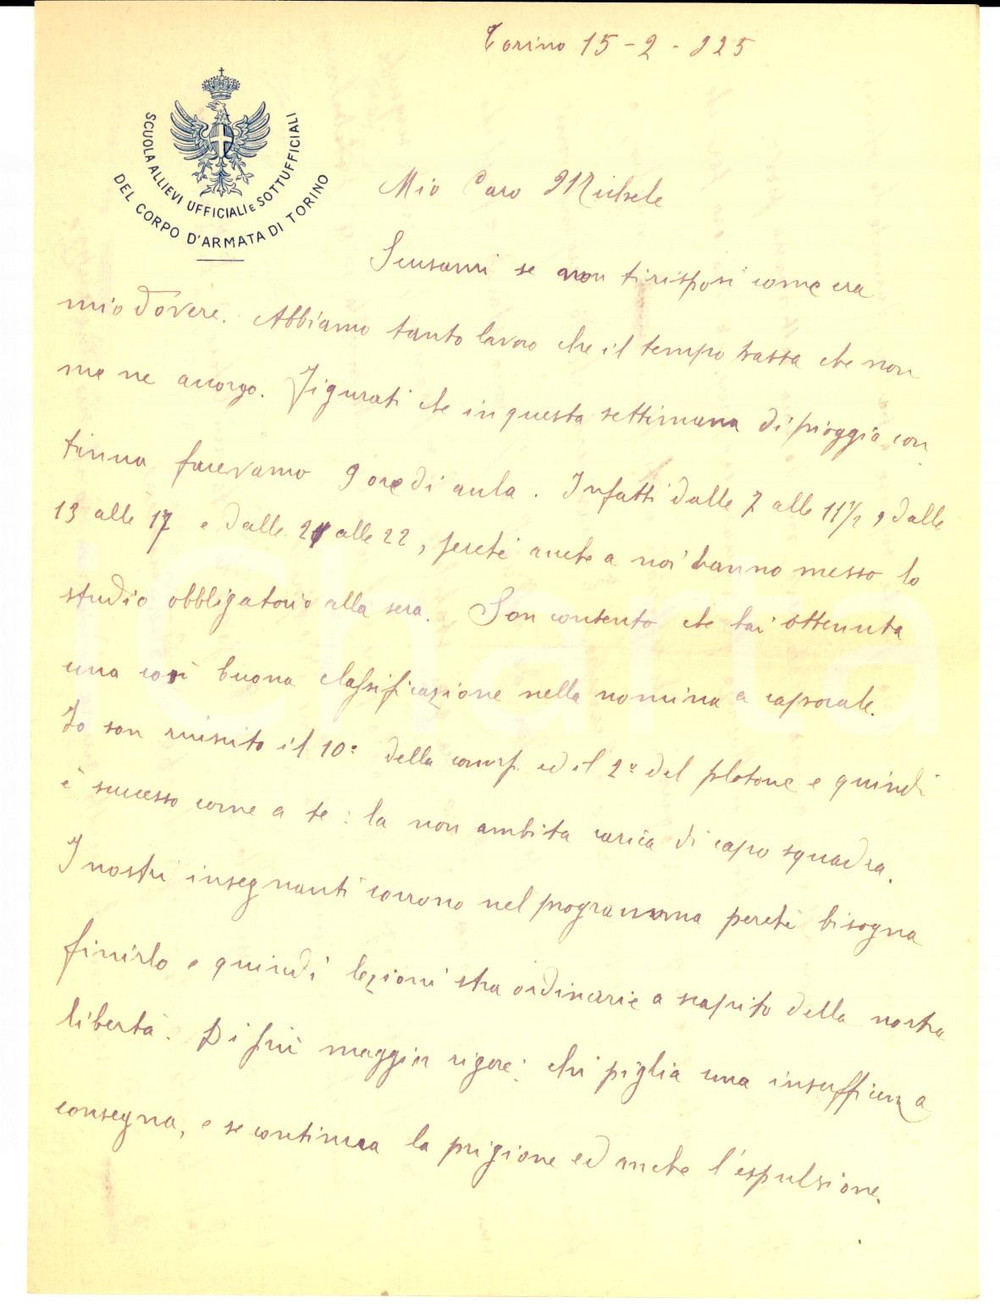 Torino 15-2-925
SCUOLA ALLIEVI UFFICIALI E SOTTUFFICIALI
DEL CORPO D'ARMATA DI TORINO
Mio Caro Michele
Scusami se non ti risposi come era
mio dovere. Abbiamo tanto lavoro che il tempo passa che non
me ne accorgo. Figurati che in questa settimana di pioggia con
tinua facevamo 9 ore di aula. Infatti dalle 7 alle 11 1/2, dalle
13 alle 17 e dalle 21 alle 22, perchè anche a noi hanno messo lo
studio obbligatorio alla sera. Son contento che hai ottenuta
una così buona classificazione nella nomina a caporale.
Io son riuscito il 10° della comp. ed il 2° del plotone e quindi
è successo come a te: la non ambita carica di capo squadra.
I nostri insegnanti corrono nel programma perchè bisogna
finirlo e quindi lezioni straordinarie a scapito della nostra
libertà. Di più maggior rigore: chi piglia una insufficienza
consegna, e se continua la prigione ed anche l'espulsione.